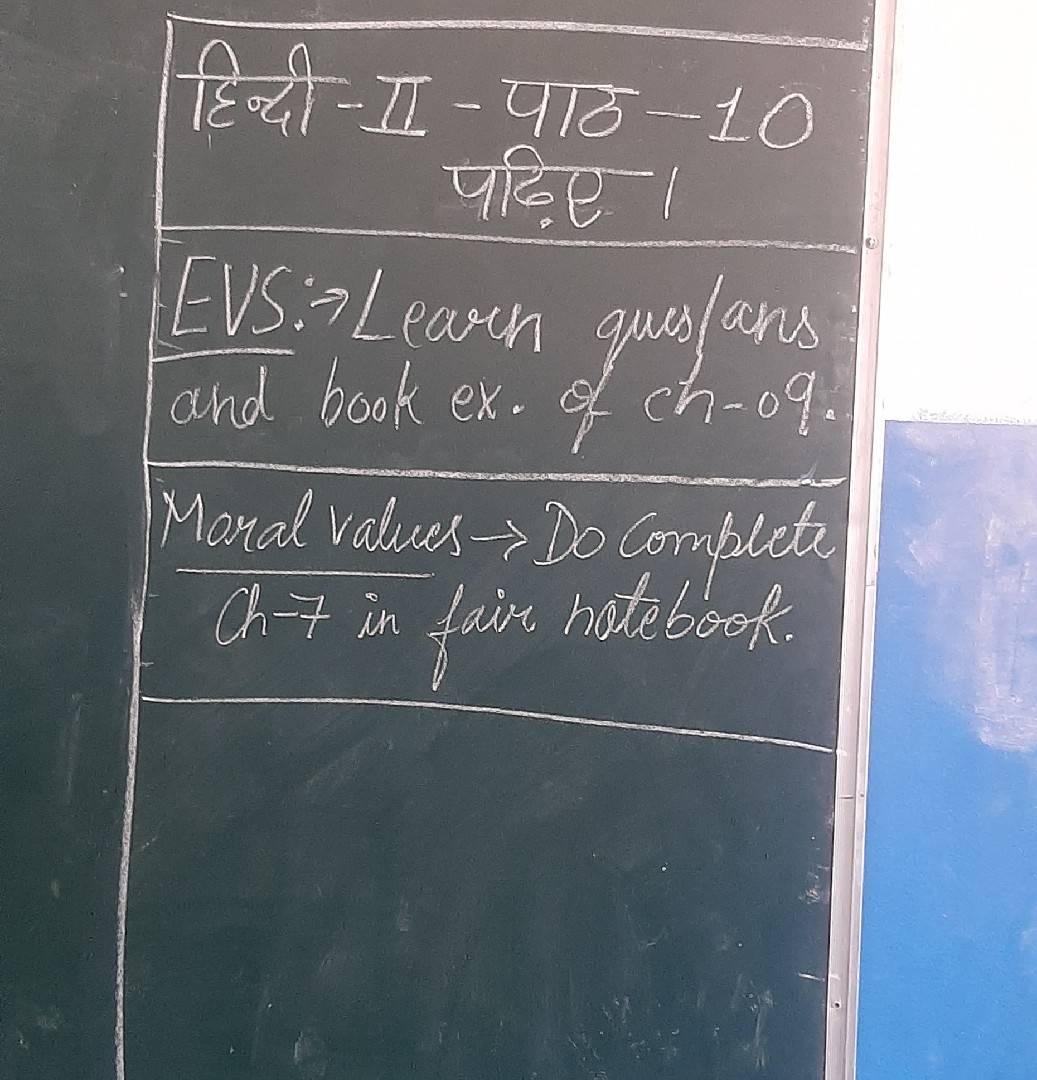 हिन्दी - II - पाठ - 10
पढ़िए ।
EVS:→ Learn ques/ans
and book ex. of ch-09.
Moral values → Do Complete
Ch-7 in fair notebook.